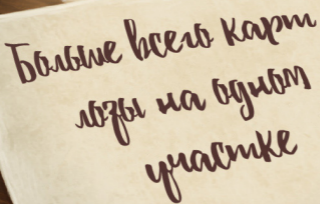 Больше всего карт
лозы на одном
участке